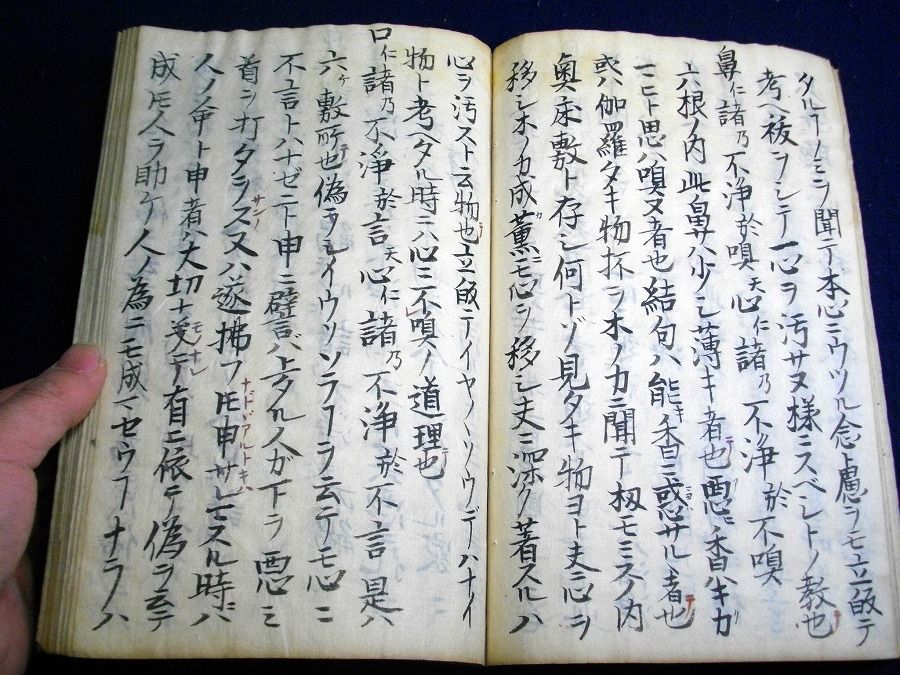 タルヿノミヲ聞テ本心ニウツル念慮ヲモ立皈テ
考ヘ祓ヲシテ一心ヲ汚サヌ様ニスベシトノ教也
鼻仁諸乃不浄於嗅天心仁諸乃不浄於不嗅
六根ノ内此鼻サハ少シ薄キ者也悪キ香ハキガ
ニヒト思ハ嗅ヌ者也結句ハ能キ香ニ惑サルヽ者也
或ハ伽羅タキ物抔ヲ木ノカニ聞テ扨モミスノ内
奥床敷ト存シ何トゾ見タキ物ヨト夫ニ心ヲ
移シ木ノカ成薫ニモ心ヲ移シ夫ニ深ク著スルハ
心ヲ汚スト云物也立皈テイヤ〱ソウデハナイ
物ト考ヘタル時ニハ心ニ不嗅ノ道理也
口仁諸乃不浄於言天心仁諸乃不浄於不言是ハ
六ヶ敷所也偽ヲイウソラヿヲ云テモ心ニ
不言トハナゼニト申ニ譬ハ上タル人ガ下ヲ悪ミ
首ヲ打タラス又ハ逐拂フ𪜈申サレニスル時ニハ
人ノ命ト申者ハ大切ナ者テ有ニ依テ偽ヲ云テ
成𪜈人ヲ助ケ人ノ為ニモ成ヿセウヿナラハ